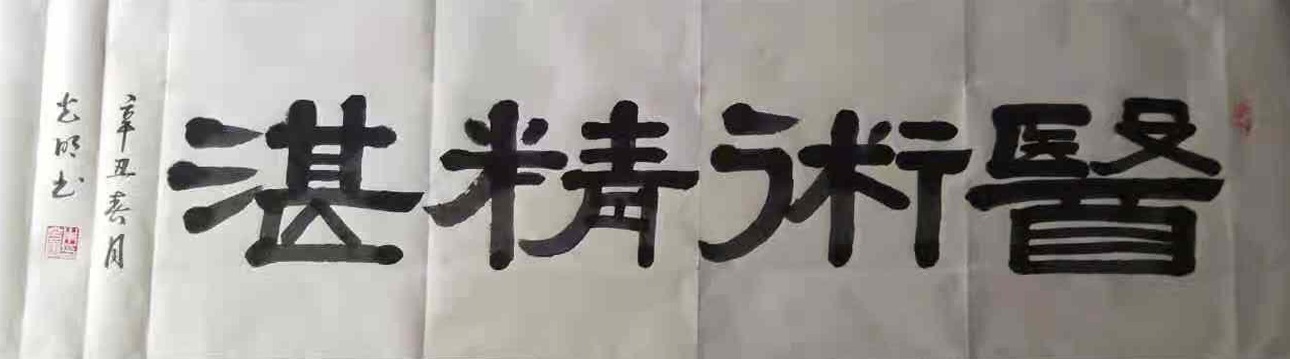 醫術精湛
辛丑春月
光明书